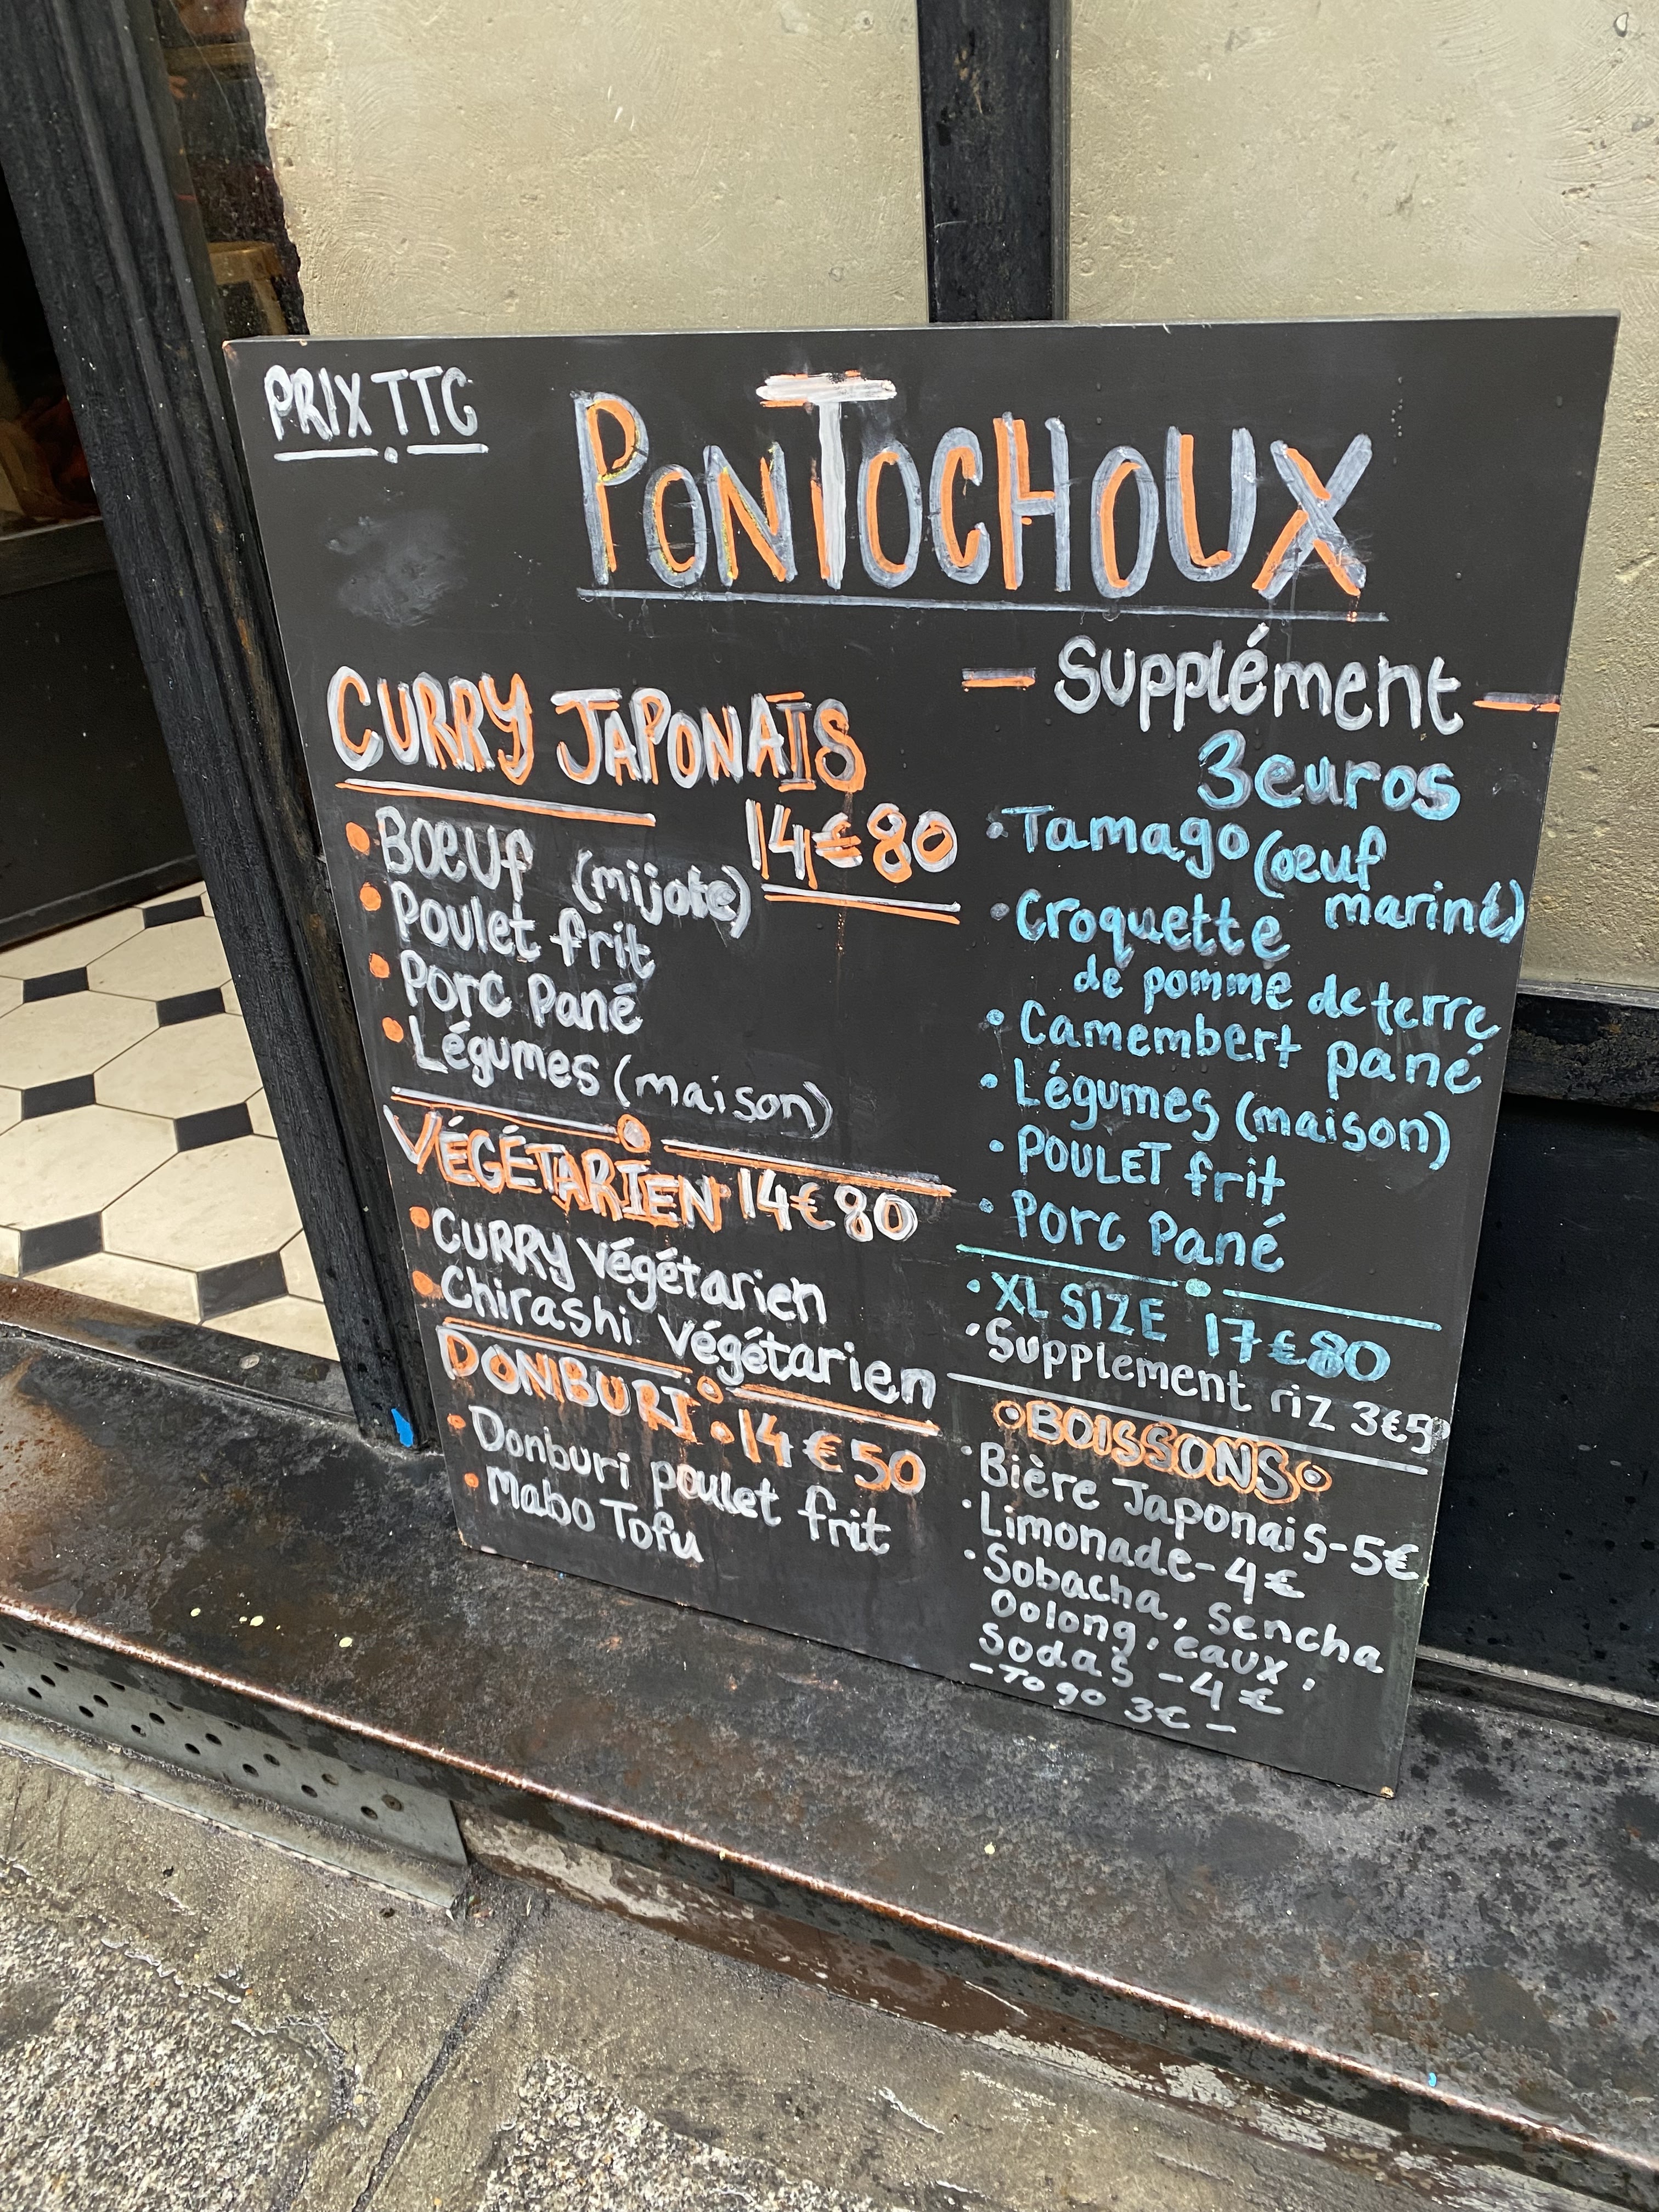 PRIX TTC
PONTOCHOUX
CURRY JAPONAIS
14€80
• BŒUF (mijoté)
• Poulet frit
• Porc Pané
• Légumes (maison)
VÉGÉTARIEN 14€80
• CURRY végétarien
• Chirashi végétarien
DONIBURI • 14€50
• Donburi poulet frit
• Mabo Tofu
— Supplément —
3euros
• Tamago (œuf
mariné)
• Croquette
de pomme de terre
• Camembert pané
• Légumes (maison)
• POULET frit
• Porc Pané
• XL SIZE 17€80
• Supplement riz 3€50
BOISSONS
• Bière Japonais-5€
• Limonade-4€
• Sobacha, sencha
Oolong, eaux,
sodas -4€
- To go 3€ -